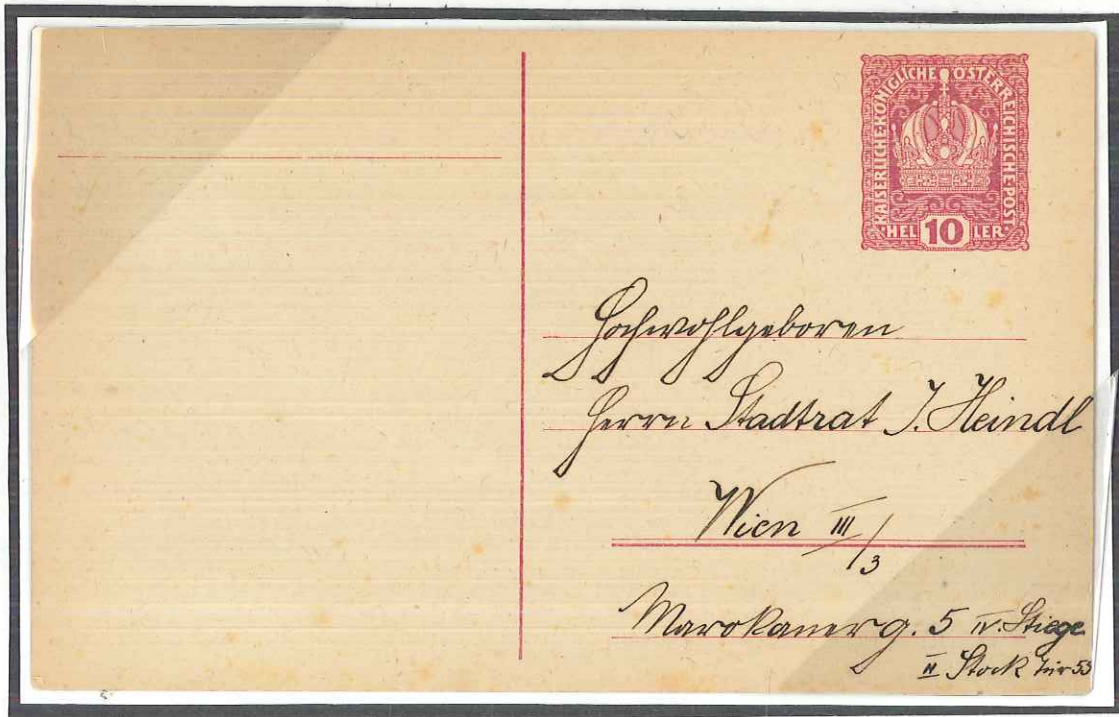 KAISERLICHE KÖNIGLICHE ÖSTERREICHISCHE POST
HELLER 10
Hochwohlgeboren
Herrn Stadtrat J. Heindl
Wien III/3
Marokanerg. 5 IV. Stiege
II Stock Tür 53